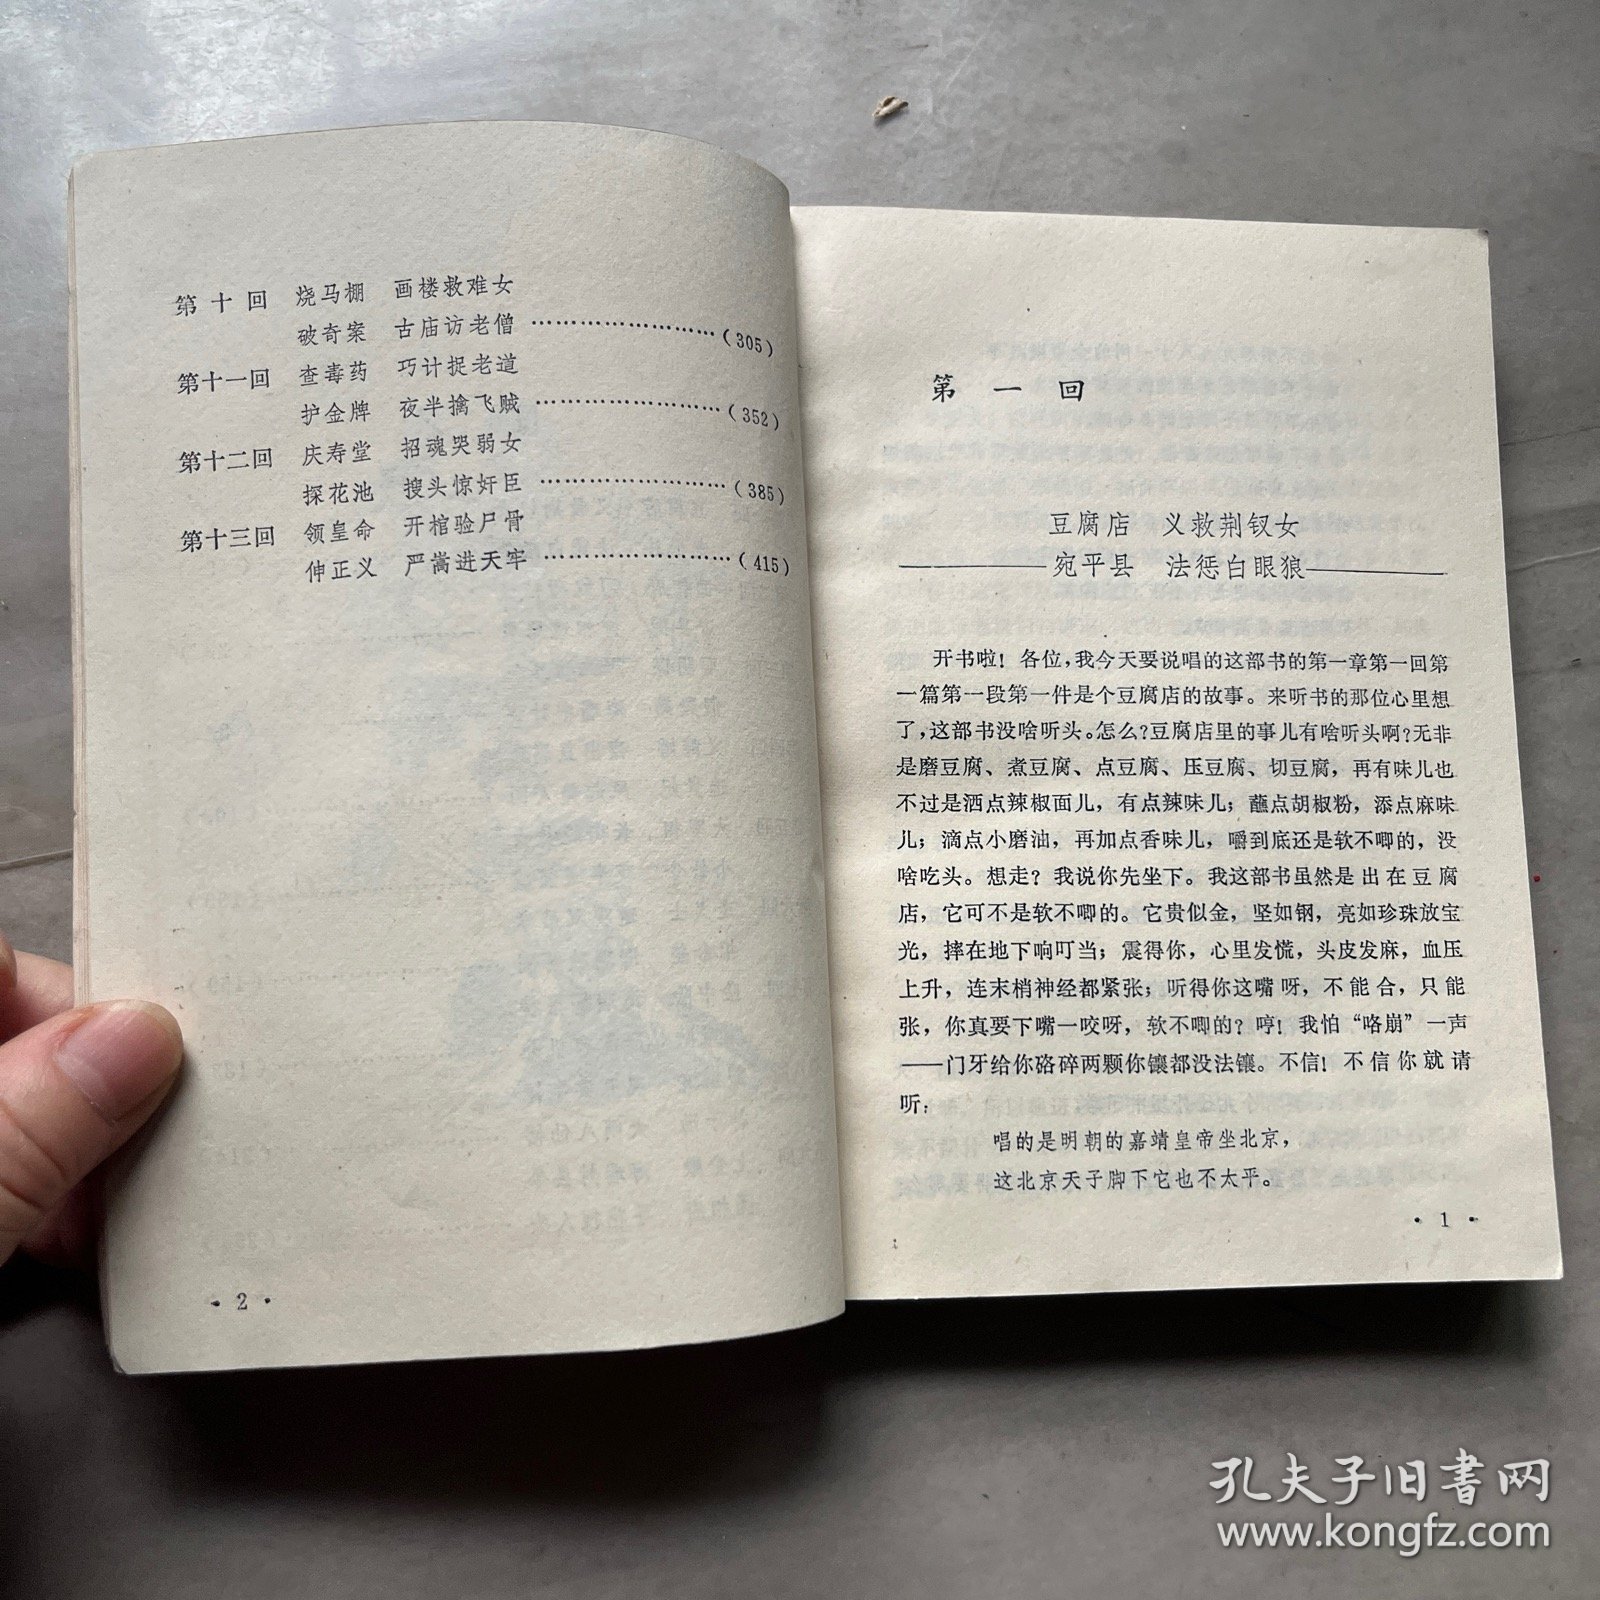 第十回 烧马棚 画楼救难女
破奇案 古庙访老僧 ……………………(305)
第十一回 查毒药 巧计捉老道
护金牌 夜半擒飞贼 ……………………(352)
第十二回 庆寿堂 招魂哭弱女
探花池 搜头惊奸臣 ……………………(385)
第十三回 领皇命 开棺验尸骨
伸正义 严嵩进天牢 ……………………(415)
· 2 ·
第一回
豆腐店 义救荆钗女
宛平县 法惩白眼狼
开书啦！各位，我今天要说唱的这部书的第一章第一回第
一篇第一段第一件是个豆腐店的故事。来听书的那位心里想
了，这部书没啥听头。怎么？豆腐店里的事儿有啥听头啊？无非
是磨豆腐、煮豆腐、点豆腐、压豆腐、切豆腐，再有味儿也
不过是洒点辣椒面儿，有点辣味儿；蘸点胡椒粉，添点麻味
儿；滴点小磨油，再加点香味儿，嚼到底还是软不唧的，没
啥吃头。想走？我说你先坐下。我这部书虽然是出在豆腐
店，它可不是软不唧的。它贵似金，坚如钢，亮如珍珠放宝
光，摔在地下响叮当；震得你，心里发慌，头皮发麻，血压
上升，连末梢神经都紧张；听得你这嘴呀，不能合，只能
张，你真要下嘴一咬呀，软不唧的？哼！我怕“咯崩”一声
——门牙给你硌碎两颗你镶都没法镶。不信！不信你就请
听：
唱的是明朝的嘉靖皇帝坐北京，
这北京天子脚下它也不太平。
· 1 ·
孔夫子旧书网
www.kongfz.com